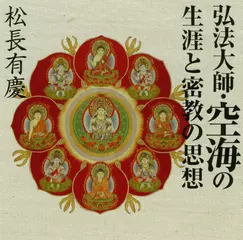 弘法大師・空海の
生涯と密教の思想
松長有慶